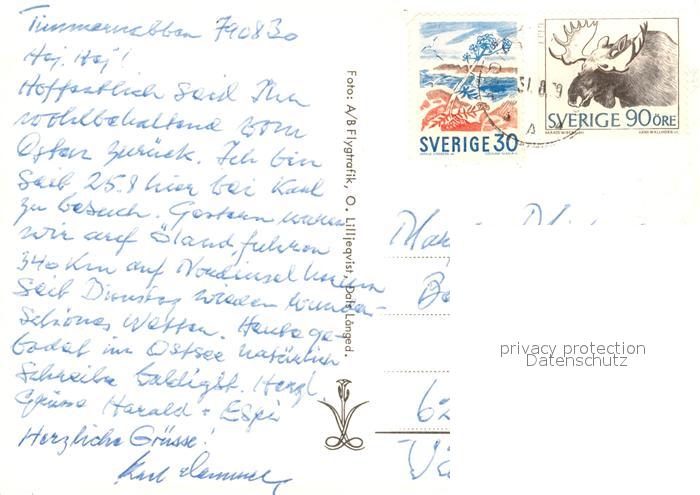 Timmernabben 790830
Hej, Hej!
Hoffentlich seid Ihr
wohlbehaltend vom
Osten zurück. Ich bin
seit 25.8 hier bei Karl
zu besuch. Gestern waren
wir auf Öland, fuhren
340 Km auf Nordinsel haben
seit Dienstag wieder wunder-
schönes Wetter. Heute ge-
badet in Ostsee natürlich
Schreibe baldigst. Herzl
Grüsse Harald +
Herzliche Grüsse!
Karl
Foto: A/B Flygtrafik, O. Lilljeqvist, Dals Långed.
SVERIGE 30
31.8.79
SVERIGE 90 ÖRE
62
privacy protection
Datenschutz